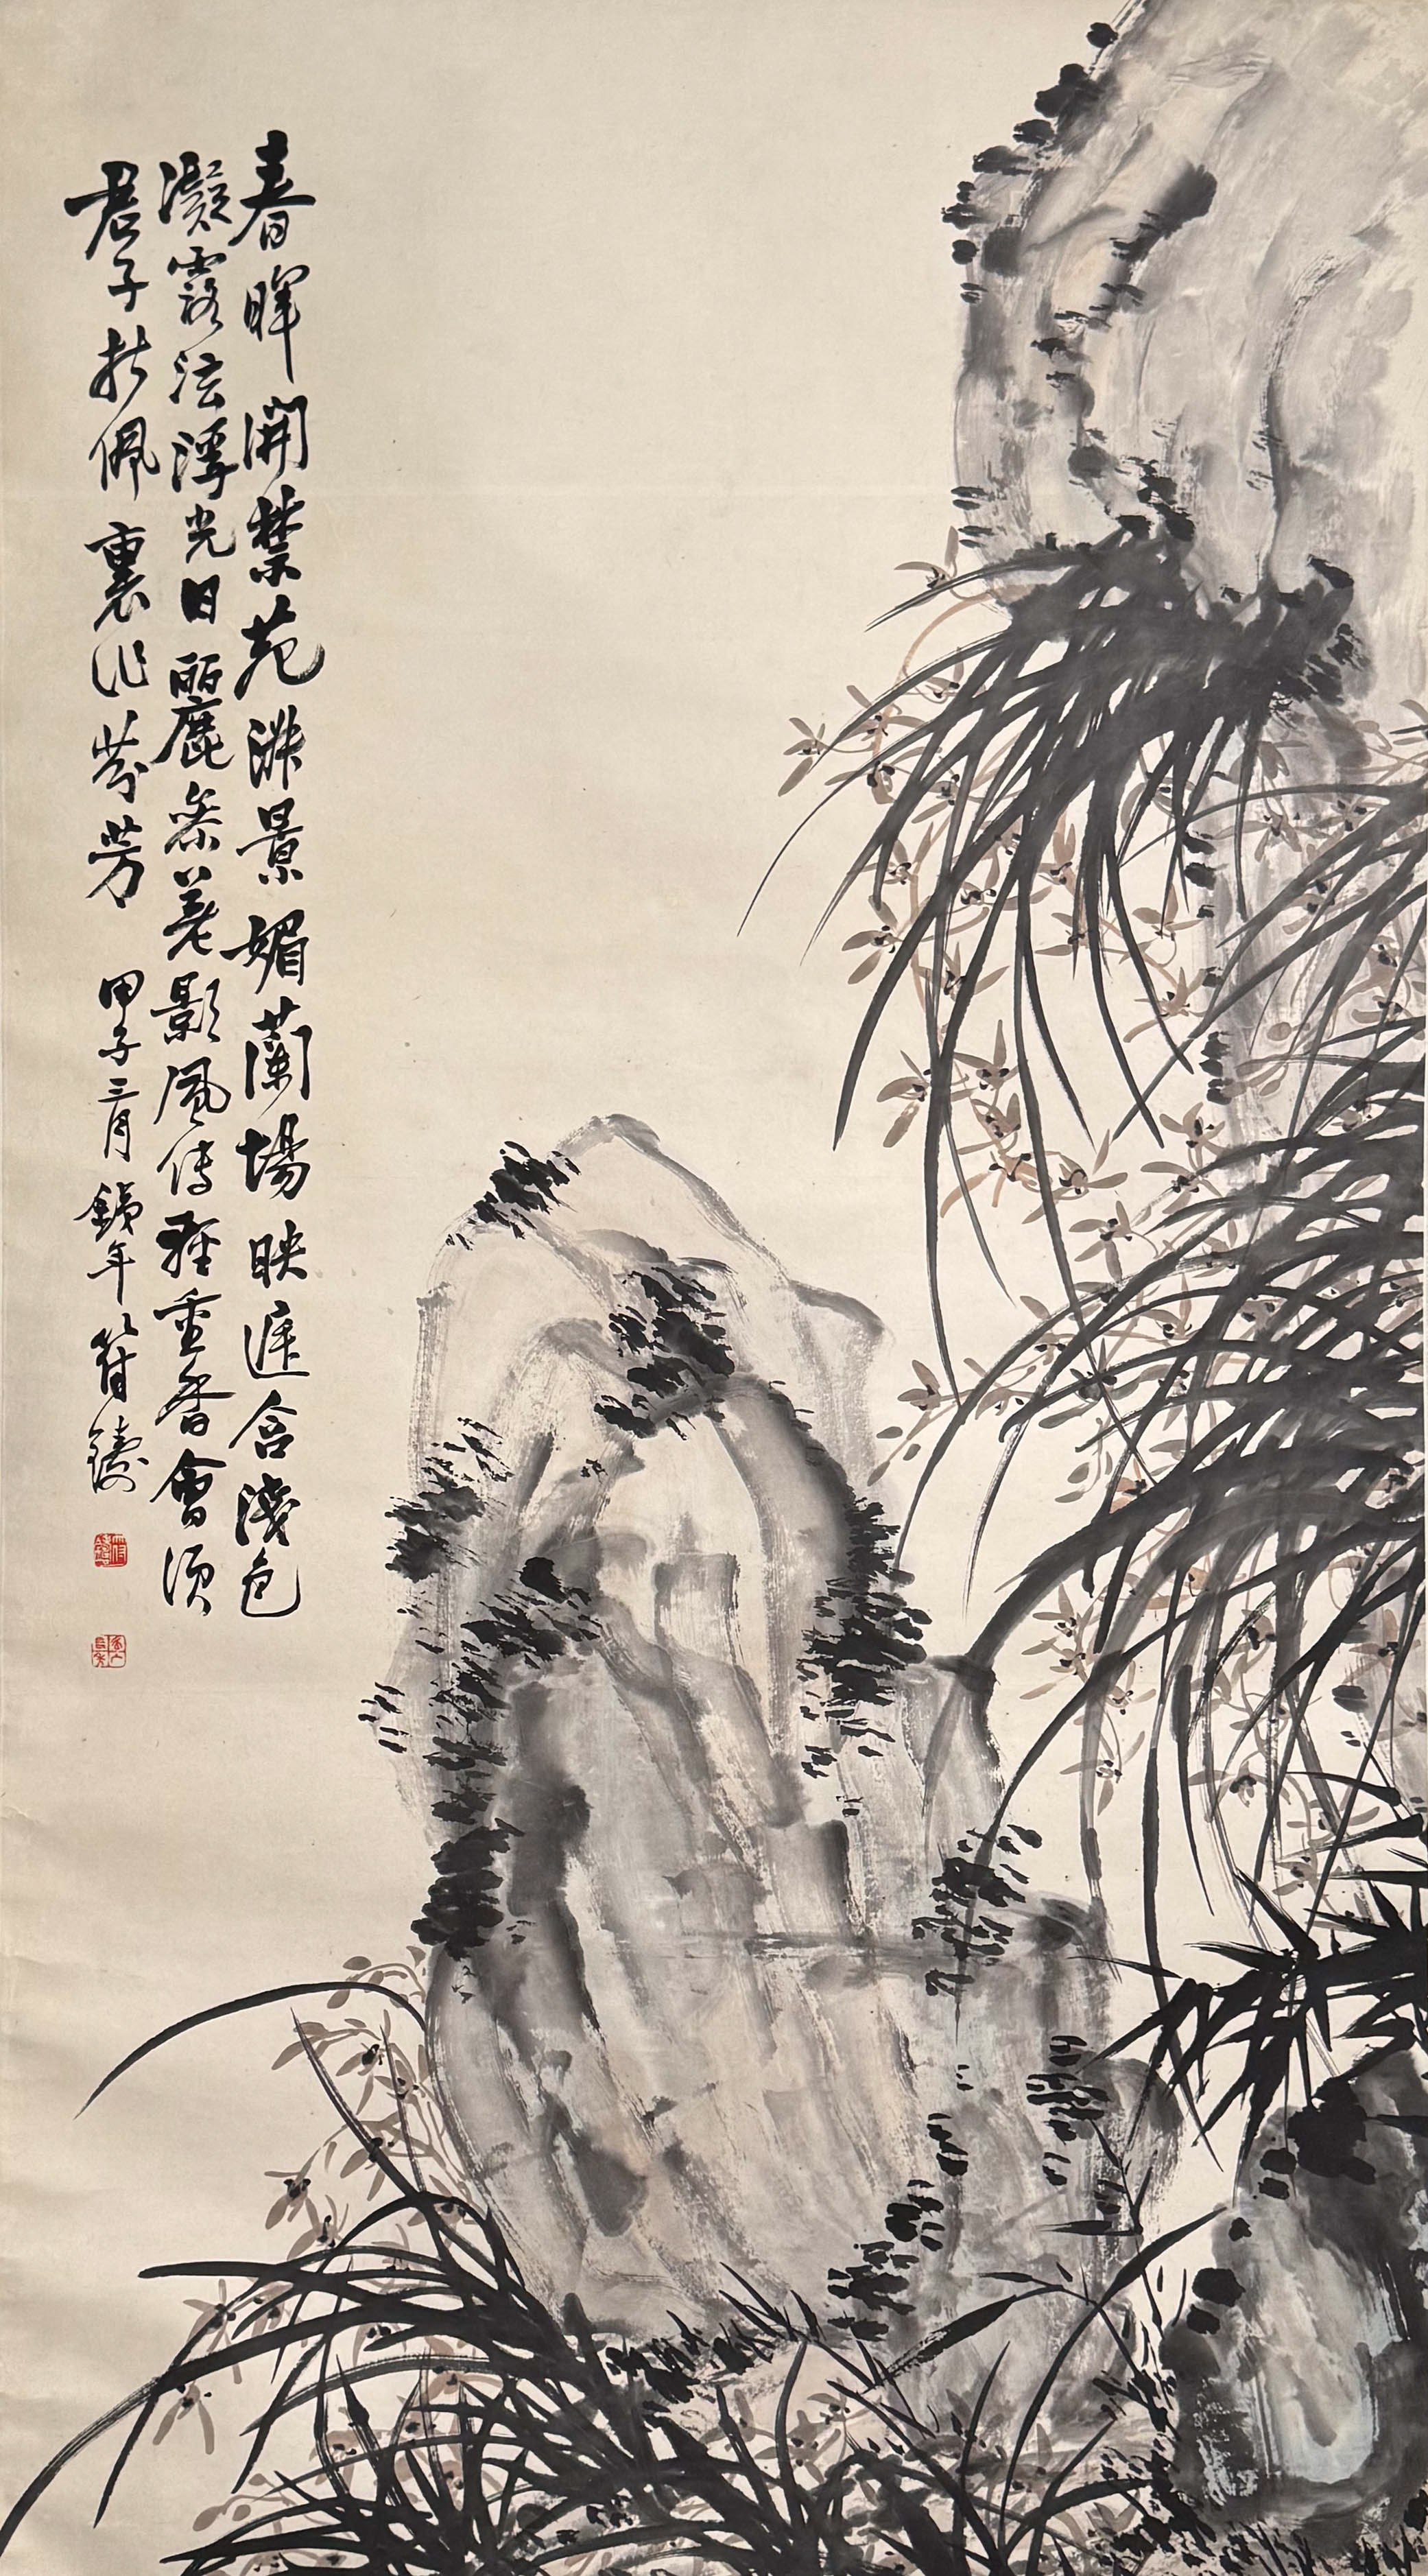 春暉開禁苑淑景媚蘭場映遞含淺色
凝露泫浮光日麗參差影風傳輕重香會須
君子折佩裏作芬芳 甲子三月 銕年符鑄